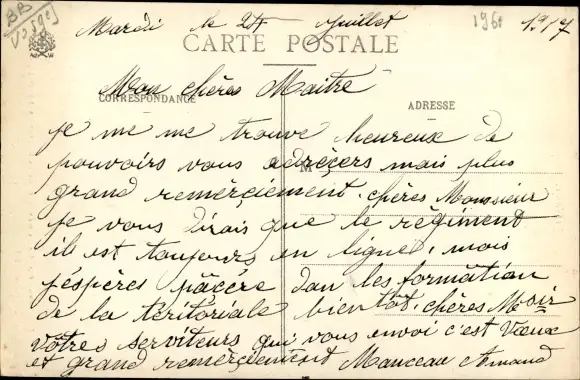 BB
Mardi le 24 Juillet 1917
1960
CARTE POSTALE
Mon chères Maitre
CORRESPONDANCE
ADRESSE
je me me trouve heureux de
pouvoirs vous adrèçers mais plus
M
grand remèrçiement. chères Monsieur
je vous dirais que le règiment
il est toujours en ligne, mais
j'éspères pâçère dan les formâtion
de la tèritoriale bien tôt. chères M-sir
Vôtres serviteurs qui vous envoi c'est Vœux
et grand remèrçiement Manceau Armand